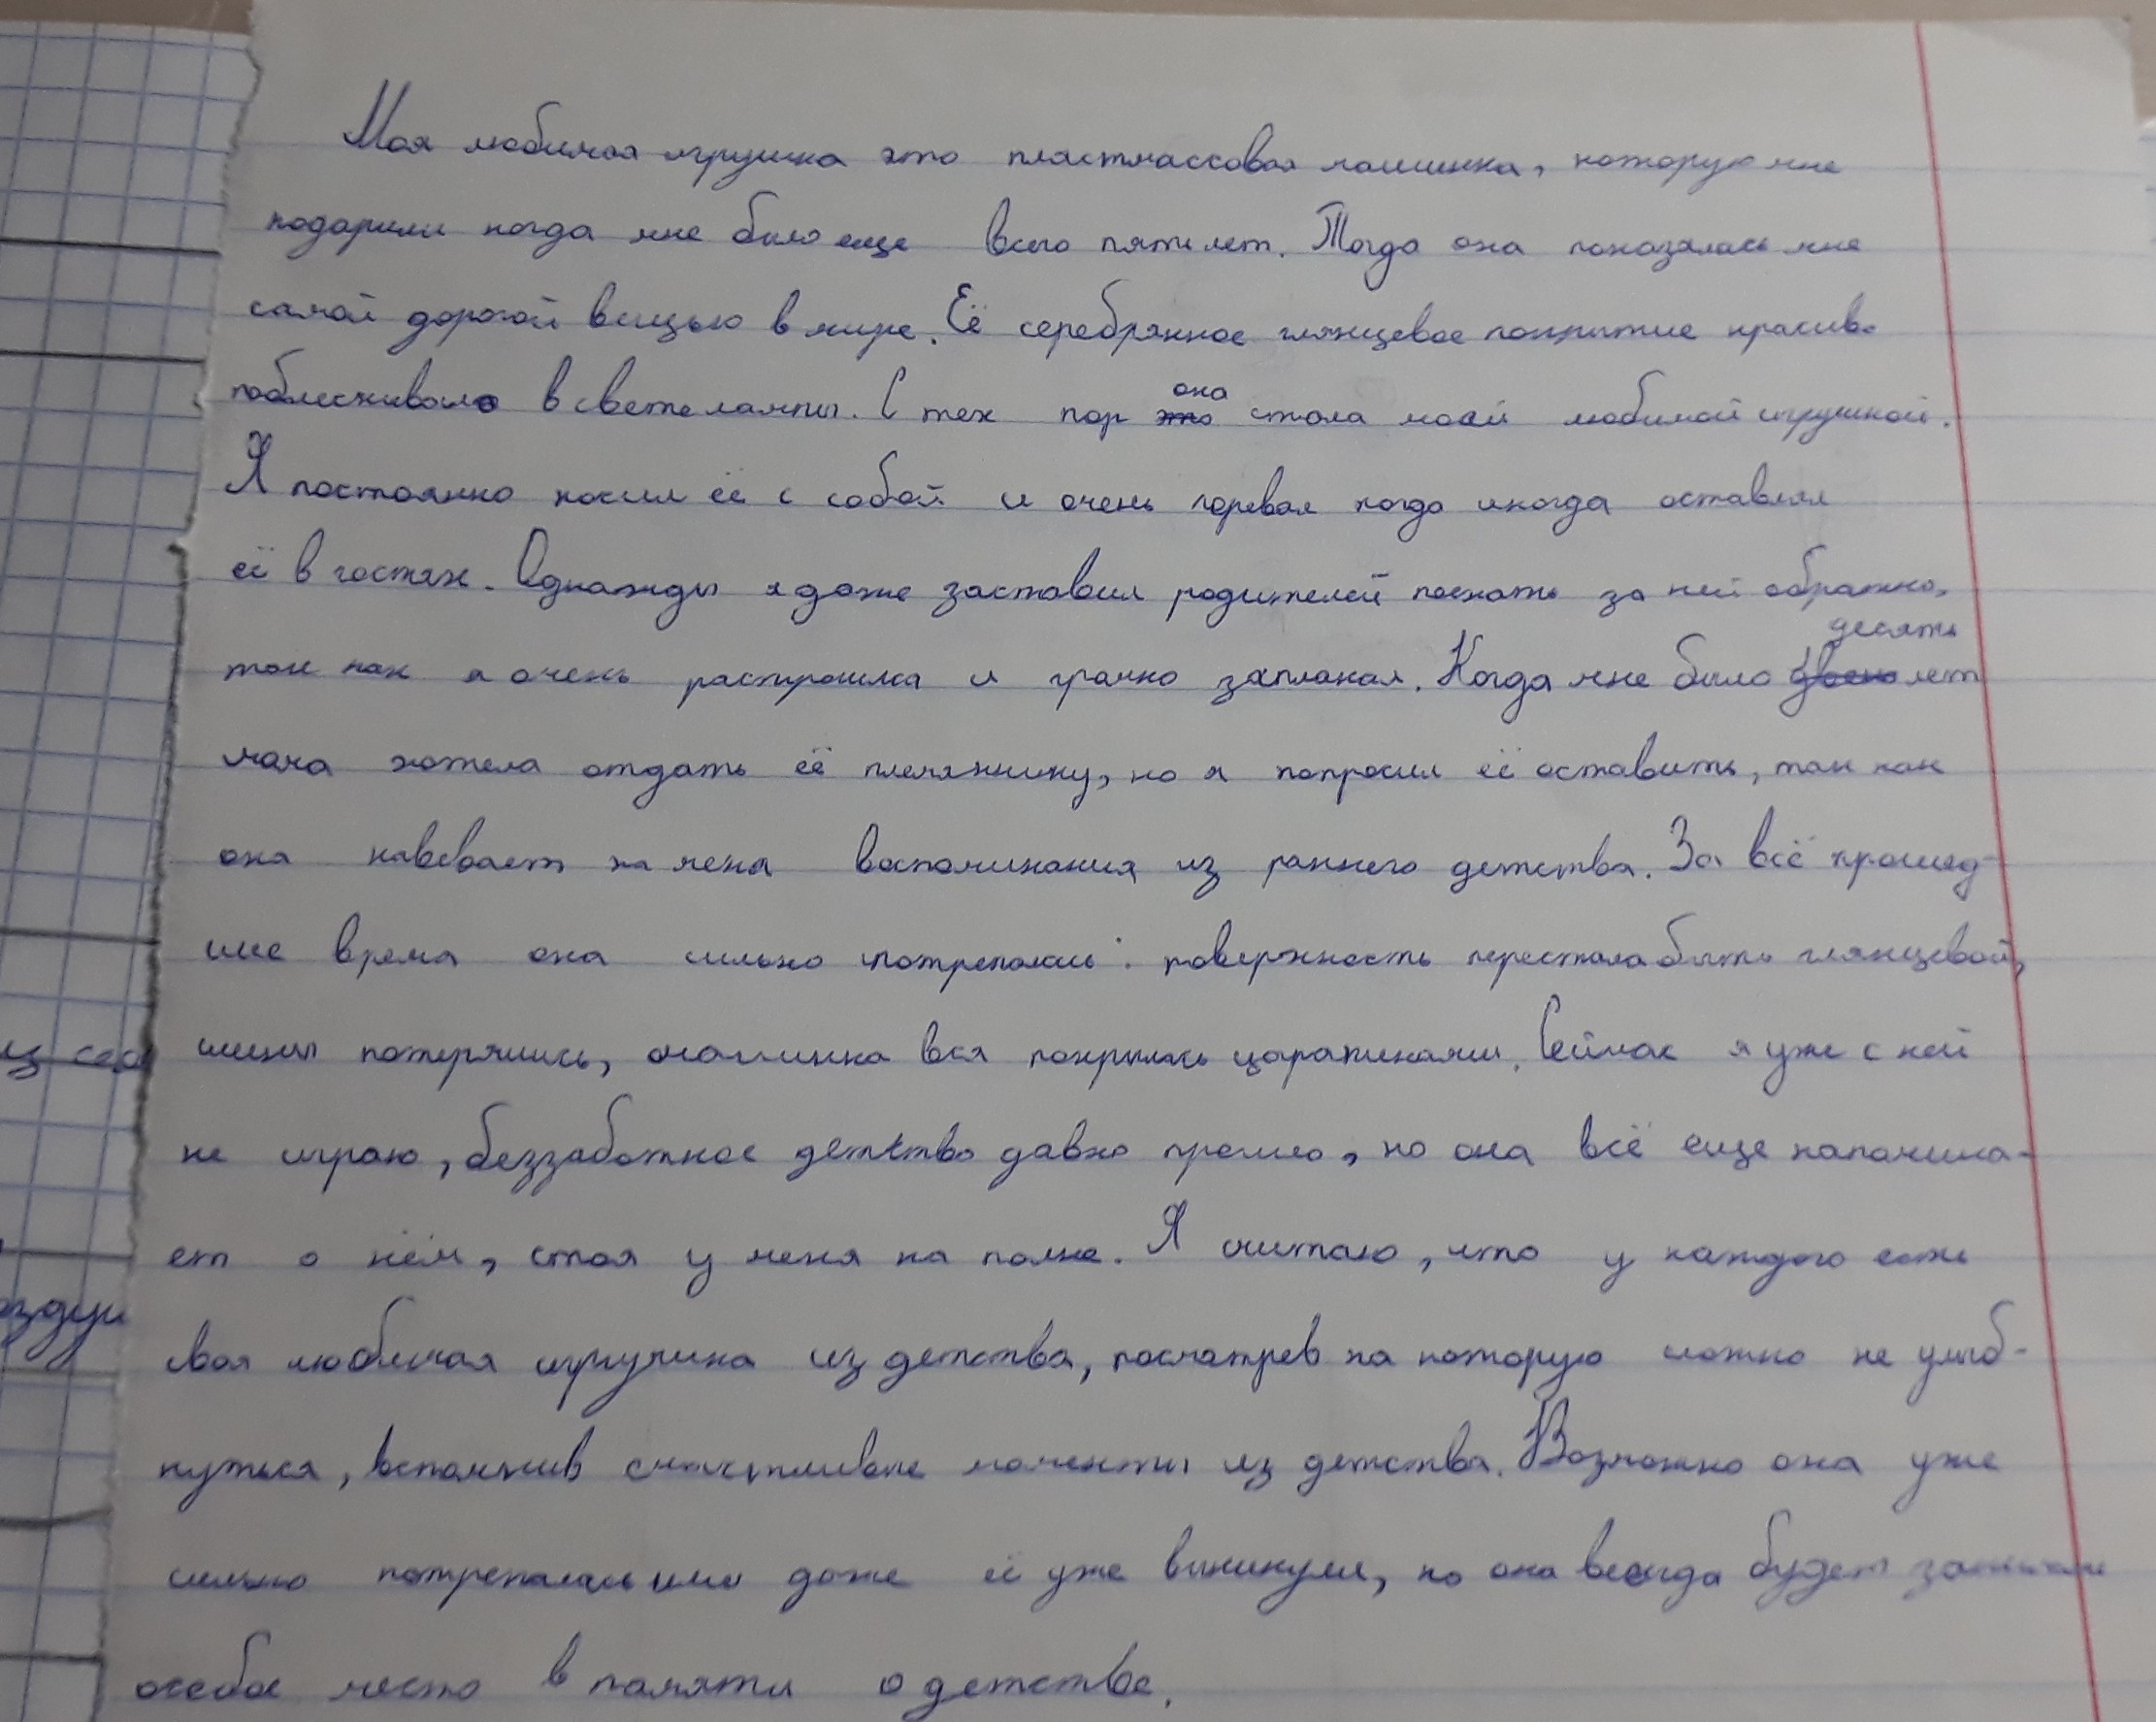 Моя любимая игрушка это пластмассовая машинка, которую мне
подарили когда мне было еще всего пять лет. Тогда она показалась мне
самой дорогой вещью в мире. Её серебрянное глянцевое покрытие красиво
поблескивало в свете лампы. С тех пор она стала моей любимой игрушкой.
Я постоянно носил её с собой и очень горевал когда иногда оставлял
её в гостях. Однажды я даже заставил родителей поехать за ней обратно,
так как я очень расстроился и громко заплакал. Когда мне было десять лет
мама хотела отдать её племяннику, но я попросил её оставить, так как
она навевает на меня воспоминания из раннего детства. За всё прошед-
шее время она сильно потрепалась: поверхность перестала быть глянцевой,
шины потерялись, машинка вся покрылась царапинами. Сейчас я уже с ней
из сос
не играю, беззаботное детство давно прошло, но она всё еще напомина-
ет о нём, стоя у меня на полке. Я считаю, что у каждого есть
оздуш
своя любимая игрушка из детства, посмотрев на которую сложно не улыб-
нуться, вспомнив счастливые моменты из детства. Возможно она уже
сильно потрепалась или даже её уже выкинули, но она всегда будет занимать
особое место в памяти о детстве.